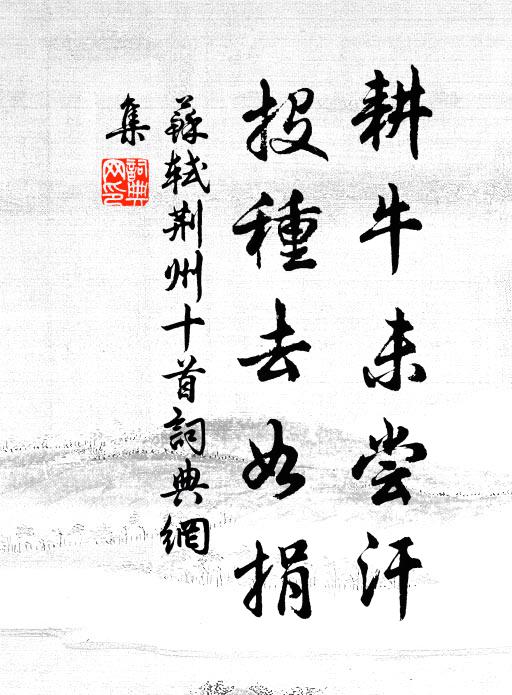 耕牛未尝汗
投種去如捐
蘇軾荆州十首詞典網
集
詞典网印